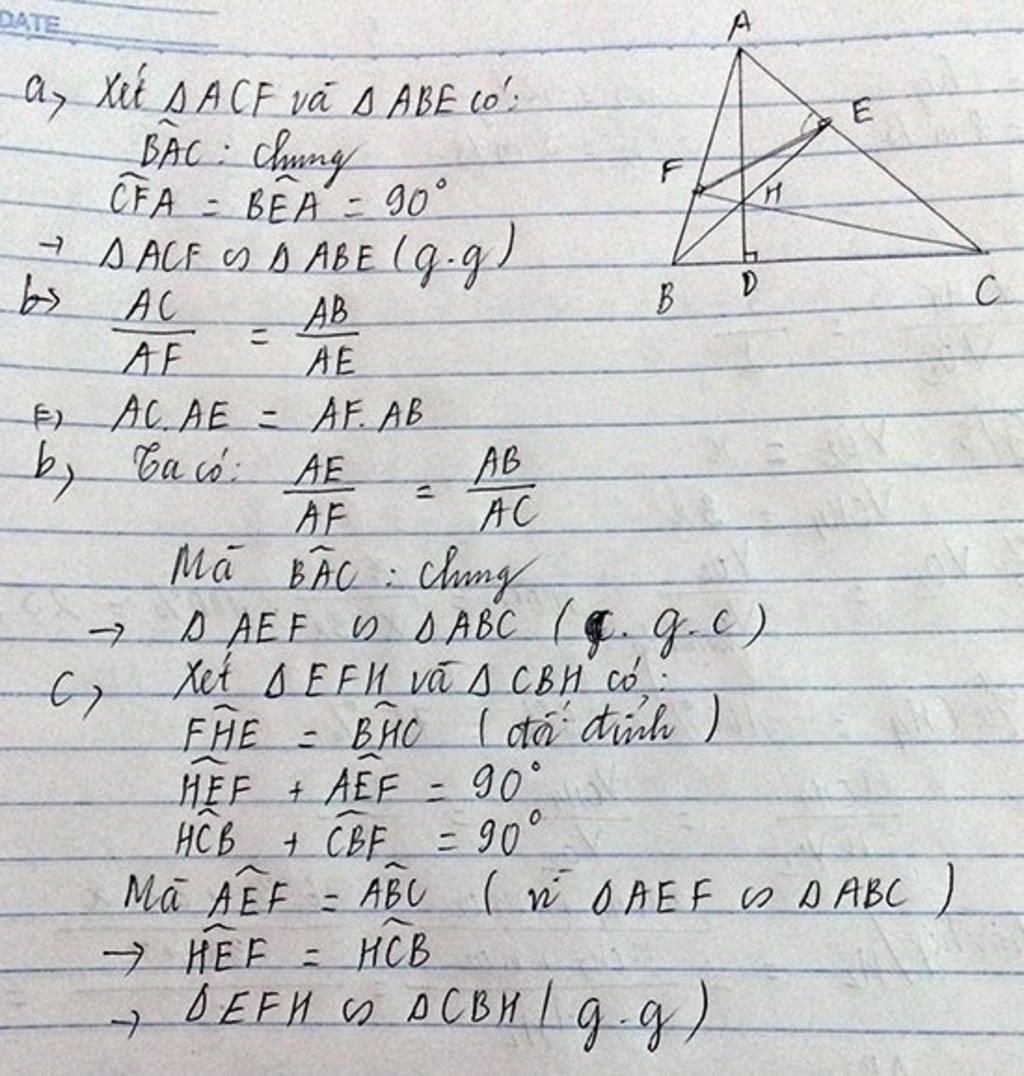 DATE
a, Xét ΔACF và ΔABE có:
B̂AC : chung
CF̂A = BÊA = 90°
→ ΔACF ∽ ΔABE (g.g)
b→ AC/AF = AB/AE
=) AC.AE = AF.AB
b, Ta có: AE/AF = AB/AC
Mà BÂC : chung
→ Δ AEF ∽ ΔABC (c.g.c)
c, Xét ΔEFH và ΔCBH có:
FĤE = BĤC (đối đỉnh)
HÊF + AÊF = 90°
HĈB + CB̂F = 90°
Mà AÊF = AB̂C (vì ΔAEF ∽ ΔABC)
→ HÊF = HĈB
→ ΔEFH ∽ ΔCBH (g.g)
A
E
F
H
B D C